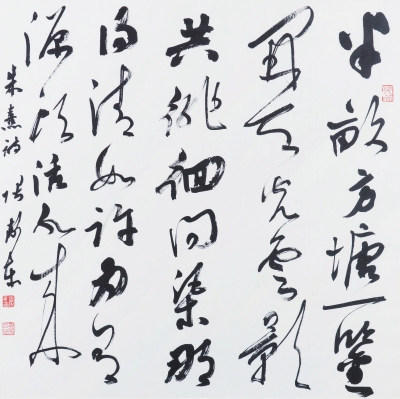 半畝方塘一鑒
開天光雲影
共徘徊問渠那
得清如許為有
源頭活水来
朱熹詩